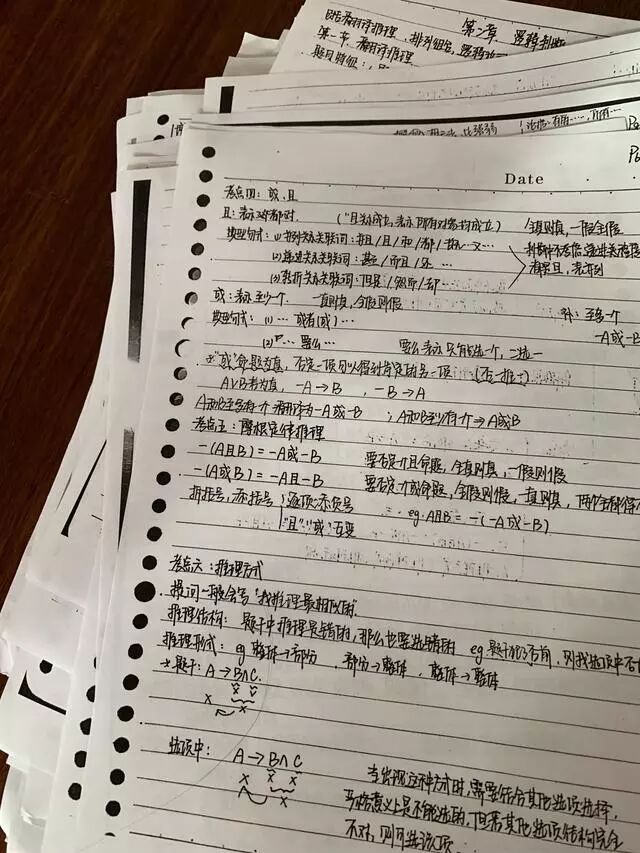 第二章 逻辑判断
包括翻译推理，排列组合，逻辑论
第一节 翻译推理
题目特征：
Date
考点四：或、且
且：表示对都对. （"且"关系成立，表示所有对象均成立） 全真则真，一假全假
典型句式：(1)并列关系关联词：并且/且/和/都/既…又…
(2)递进关系关联词：甚至/而且/还 …
(3)转折关系关联词：但是/然而/却
或：表示至少一个. 一真则真，全假则假 至多一个
典型句式：(1)… 或者(或) … -A或-B
(2) … 要么… 要么表示只有能选一个，二选一
"或"命题为真，否定一项可以得到肯定的另一项 (否一推一)
A∨B若为真，-A→B，-B→A
A和B至多有一个 翻译为-A或-B ；A和B至少有一个⇒A或B
考点五：摩根定律推理
-(A且B)=-A或-B 要否定一个且命题，全真则真，一假则假
-(A或B)=-A且-B 要否定一个或命题，全假则假，一真则真，两个全都得
拆括号，添括号 逐项添负号 eg. A且B=-(-A或-B)
"且""或"互变
考点六：推理方式
提问一般会写"找推理最相似的"
推理结构：题干中推理是错的，那么也要选错的 eg 题干犯了否前，则我选项中否
推理形式：eg 整体→部分，部分→整体，整体→整体
题干：A→B∧C.
x x
x
选项中：A→B∧C
x x x
当出现这种方式时，需要结合其他选项选择，
严格意义上是不能选的，但若其他选项结构完全
不对，则可选该项.